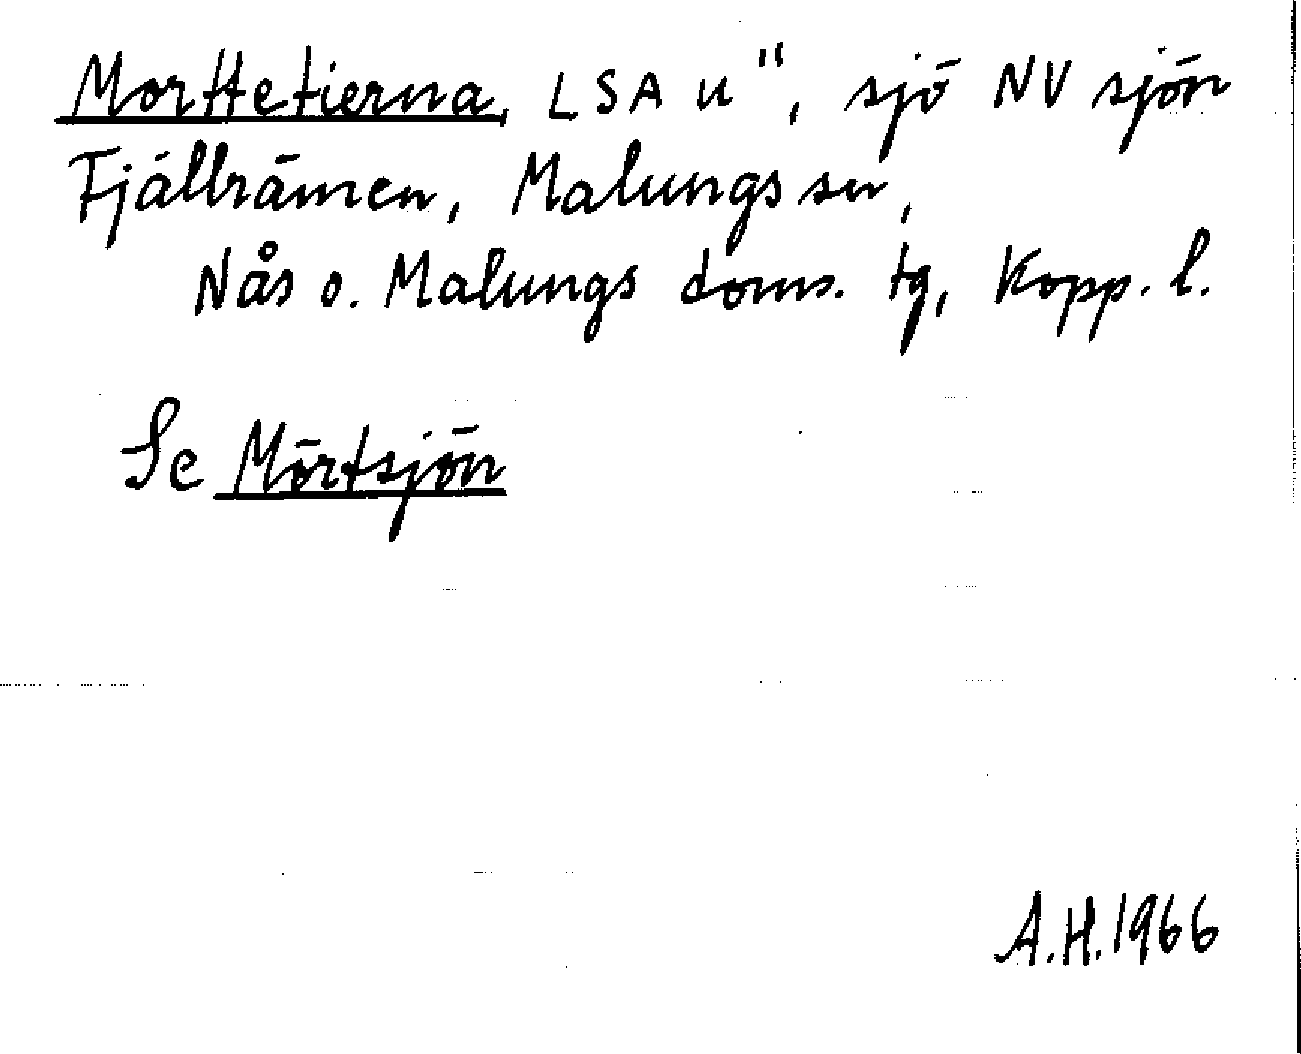 Morttetierna, LSA u", sjö NV sjön
Fjällrämen, Malungs sn,
Nås o. Malungs doms. tg, Kopp. l.
Se Mörtsjön
A.H. 1966